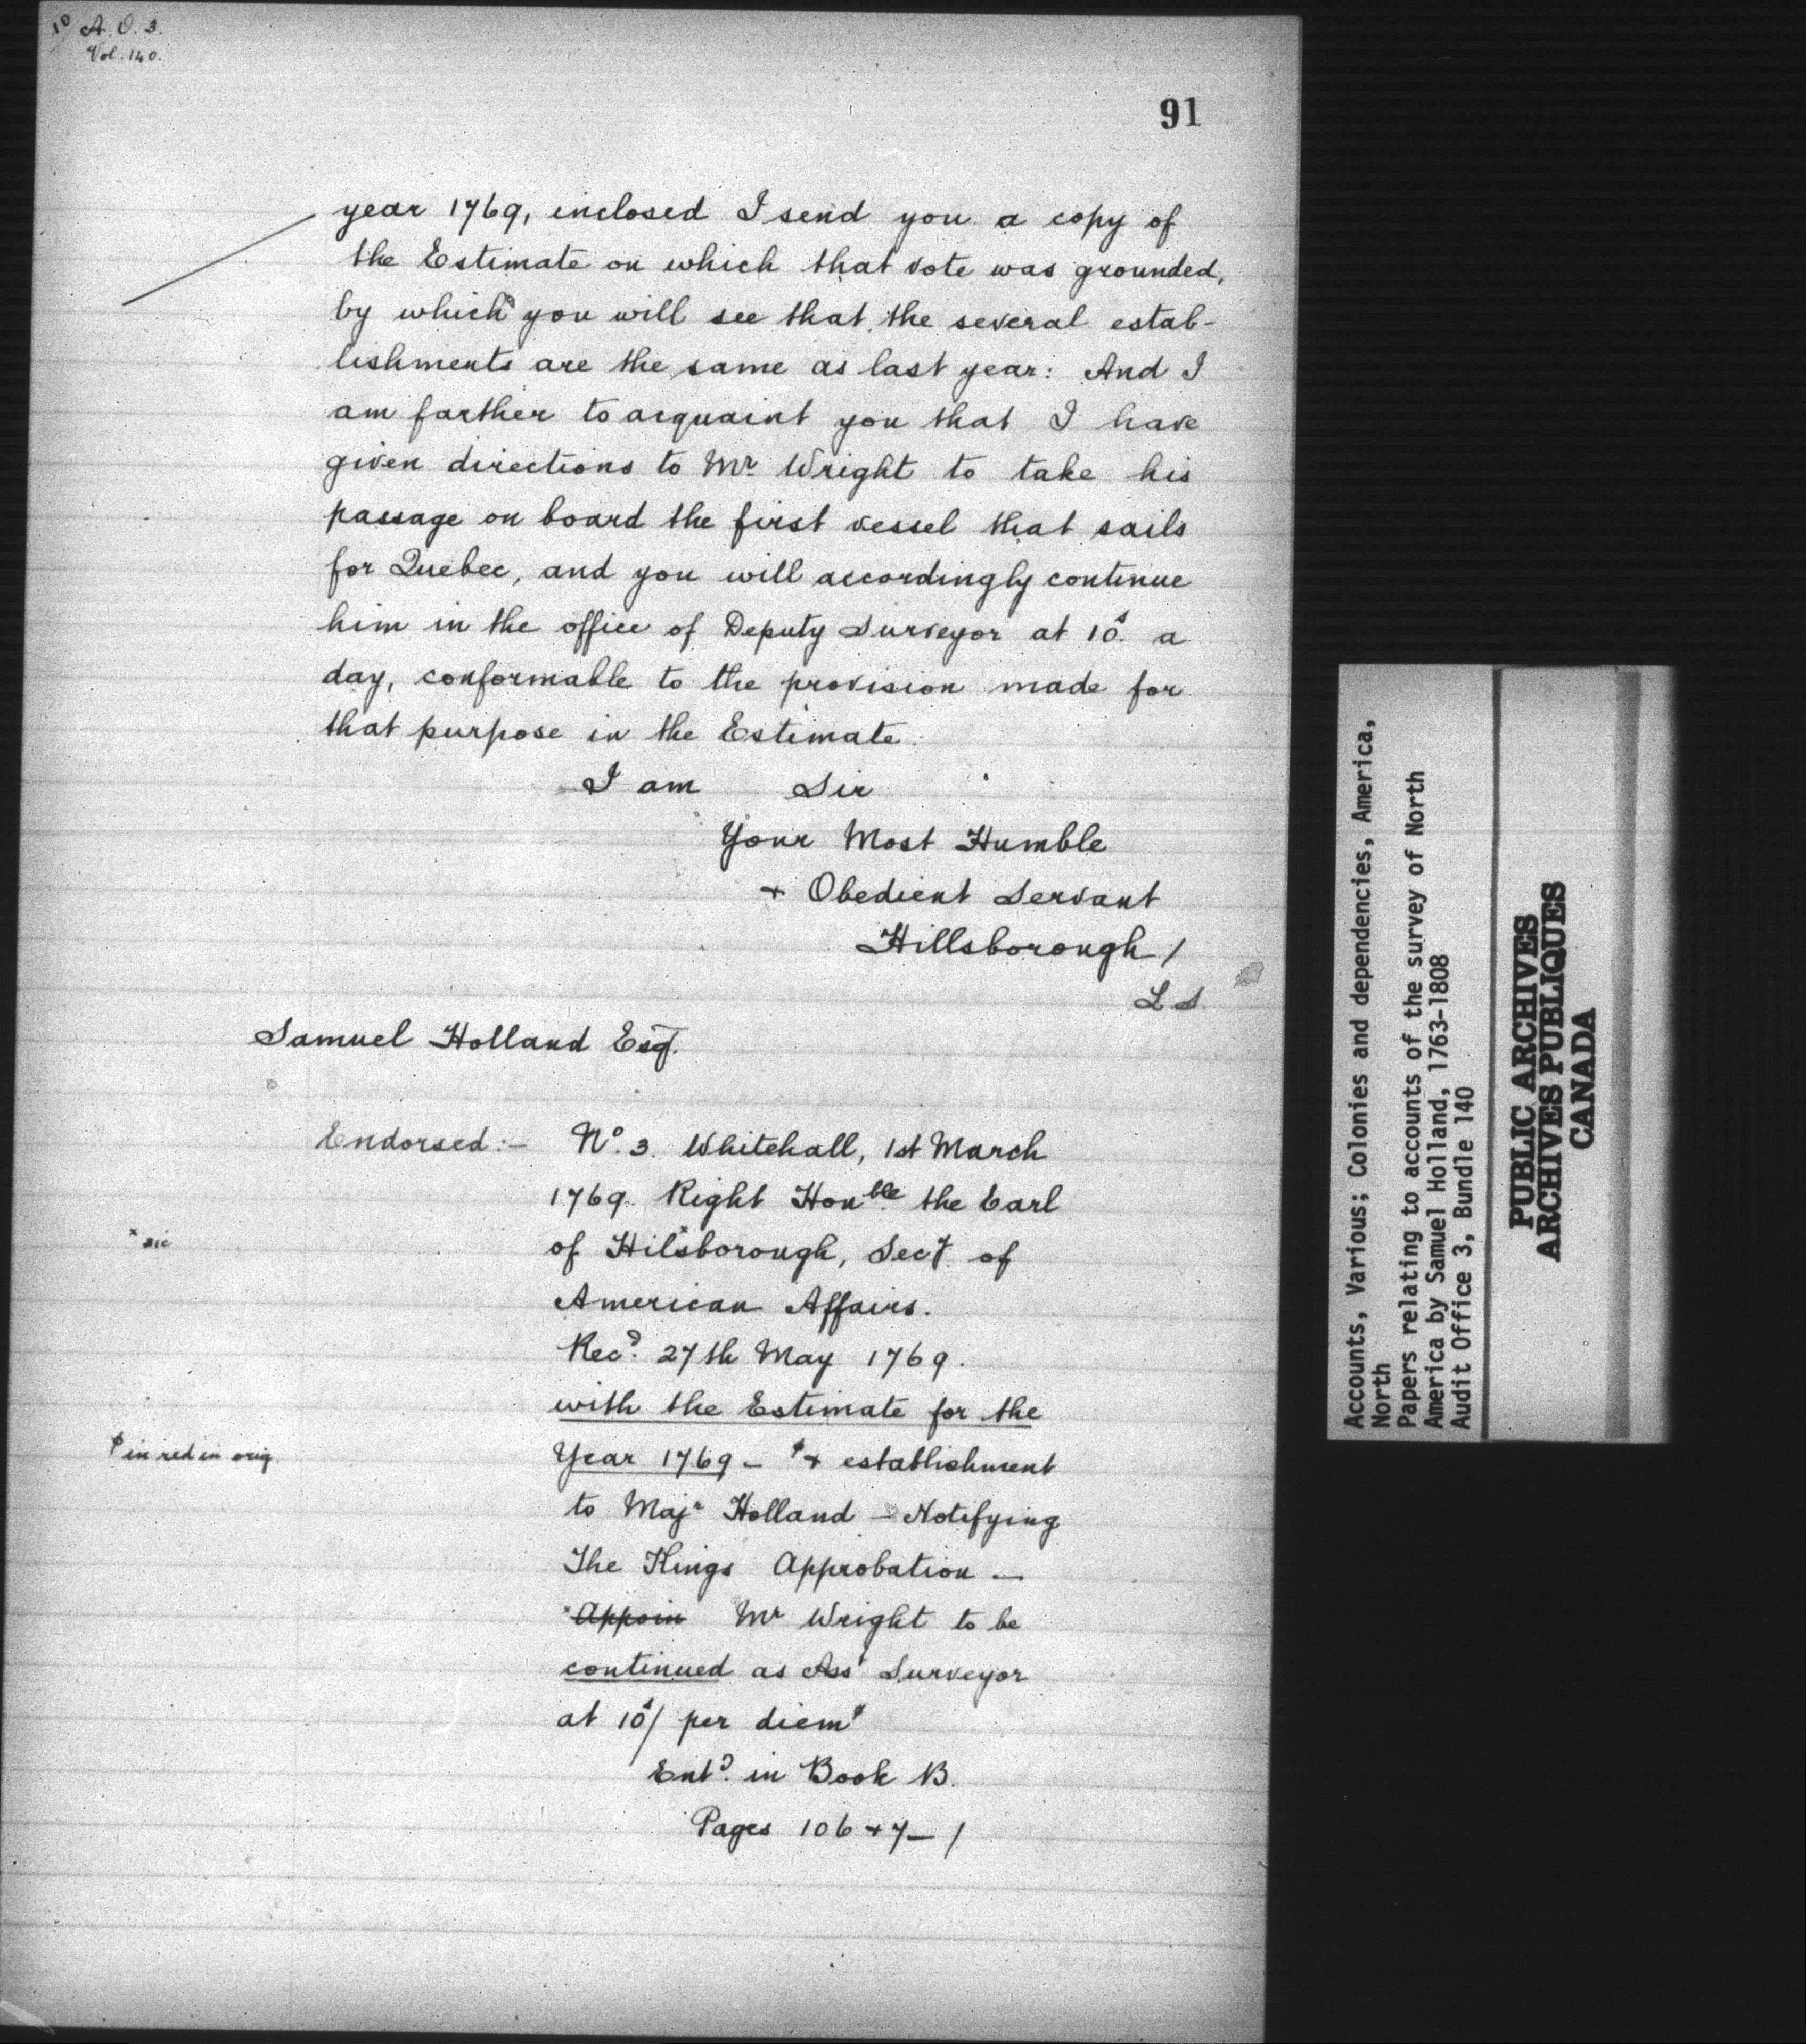 10 A. O. 3.
Vol. 140.
91
year 1769, inclosed I send you a copy of
the Estimate on which that vote was grounded,
by which you will see that the several estab-
lishments are the same as last year: And I
am farther to acquaint you that I have
given directions to Mr Wright to take his
passage on board the first vessel that sails
for Quebec, and you will accordingly continue
him in the office of Deputy Surveyor at 10s. a
day, conformable to the provision made for
that purpose in the Estimate.
I am Sir
Your Most Humble
+ Obedient Servant
Hillsborough /
L S.
Samuel Holland Esq.
Endorsed:- No. 3. Whitehall, 1st March
1769. Right Honble the Earl
x sic
of Hilxsborough, Secy. of
American Affairs.
Recd. 27th May 1769.
with the Estimate for the
φ in red in orig.
Year 1769 - φ + establishment
to Majr Holland - Notifying
The Kings Approbation -
Appoin Mr Wright to be
continued as Asst Surveyor
at 10s/ per diem φ
Entd. in Book B.
Pages 106 + 7 - /
Accounts, Various; Colonies and dependencies, America,
North
Papers relating to accounts of the survey of North
America by Samuel Holland, 1763-1808
Audit Office 3, Bundle 140
PUBLIC ARCHIVES
ARCHIVES PUBLIQUES
CANADA